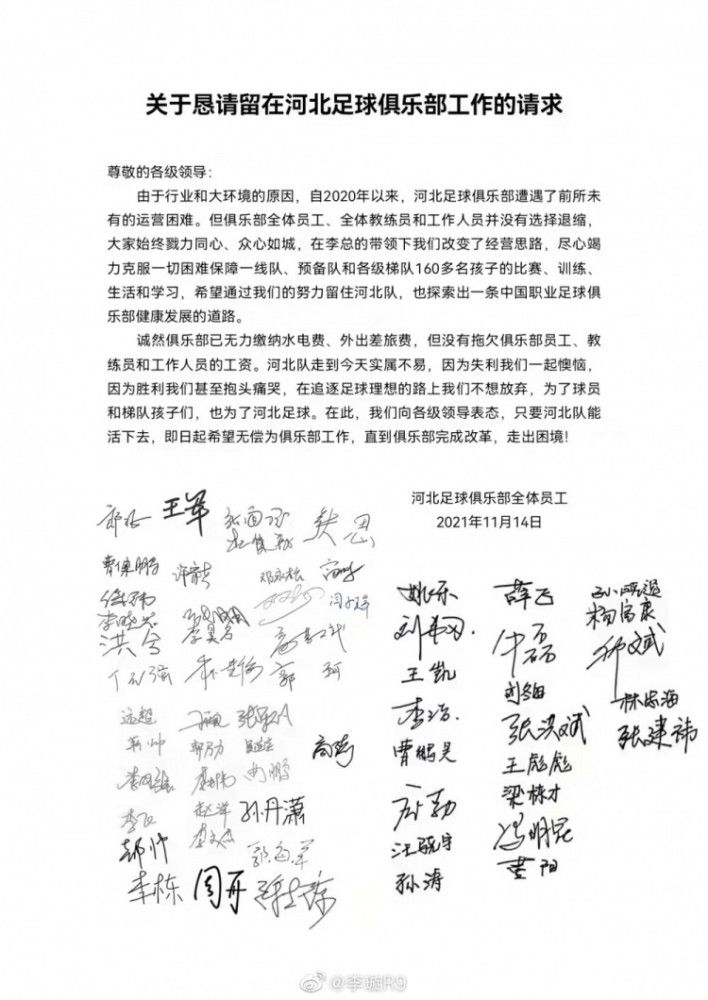 关于恳请留在河北足球俱乐部工作的请求
尊敬的各级领导：
由于行业和大环境的原因，自2020年以来，河北足球俱乐部遭遇了前所未
有的运营困难。但俱乐部全体员工、全体教练员和工作人员并没有选择退缩，
大家始终戮力同心、众心如城，在李总的带领下我们改变了经营思路，尽心竭
力克服一切困难保障一线队、预备队和各级梯队160多名孩子的比赛、训练、
生活和学习，希望通过我们的努力留住河北队，也探索出一条中国职业足球俱
乐部健康发展的道路。
诚然俱乐部已无力缴纳水电费、外出差旅费，但没有拖欠俱乐部员工、教
练员和工作人员的工资。河北队走到今天实属不易，因为失利我们一起懊恼，
因为胜利我们甚至抱头痛哭，在追逐足球理想的路上我们不想放弃，为了球员
和梯队孩子们，也为了河北足球。在此，我们向各级领导表态，只要河北队能
活下去，即日起希望无偿为俱乐部工作，直到俱乐部完成改革，走出困境！
河北足球俱乐部全体员工
2021年11月14日
王军
曹保鹏
洪兮
郭珂
远超
孙丹潇
郝帅
李栋
周丹
姚乐
王凯
李浩
曹鹏昊
孙涛
薛飞
牛磊
张洪斌
王彪彪
梁栋才
冯明昆
董阳
杨富康
林志海
张建祎
@李璇R9